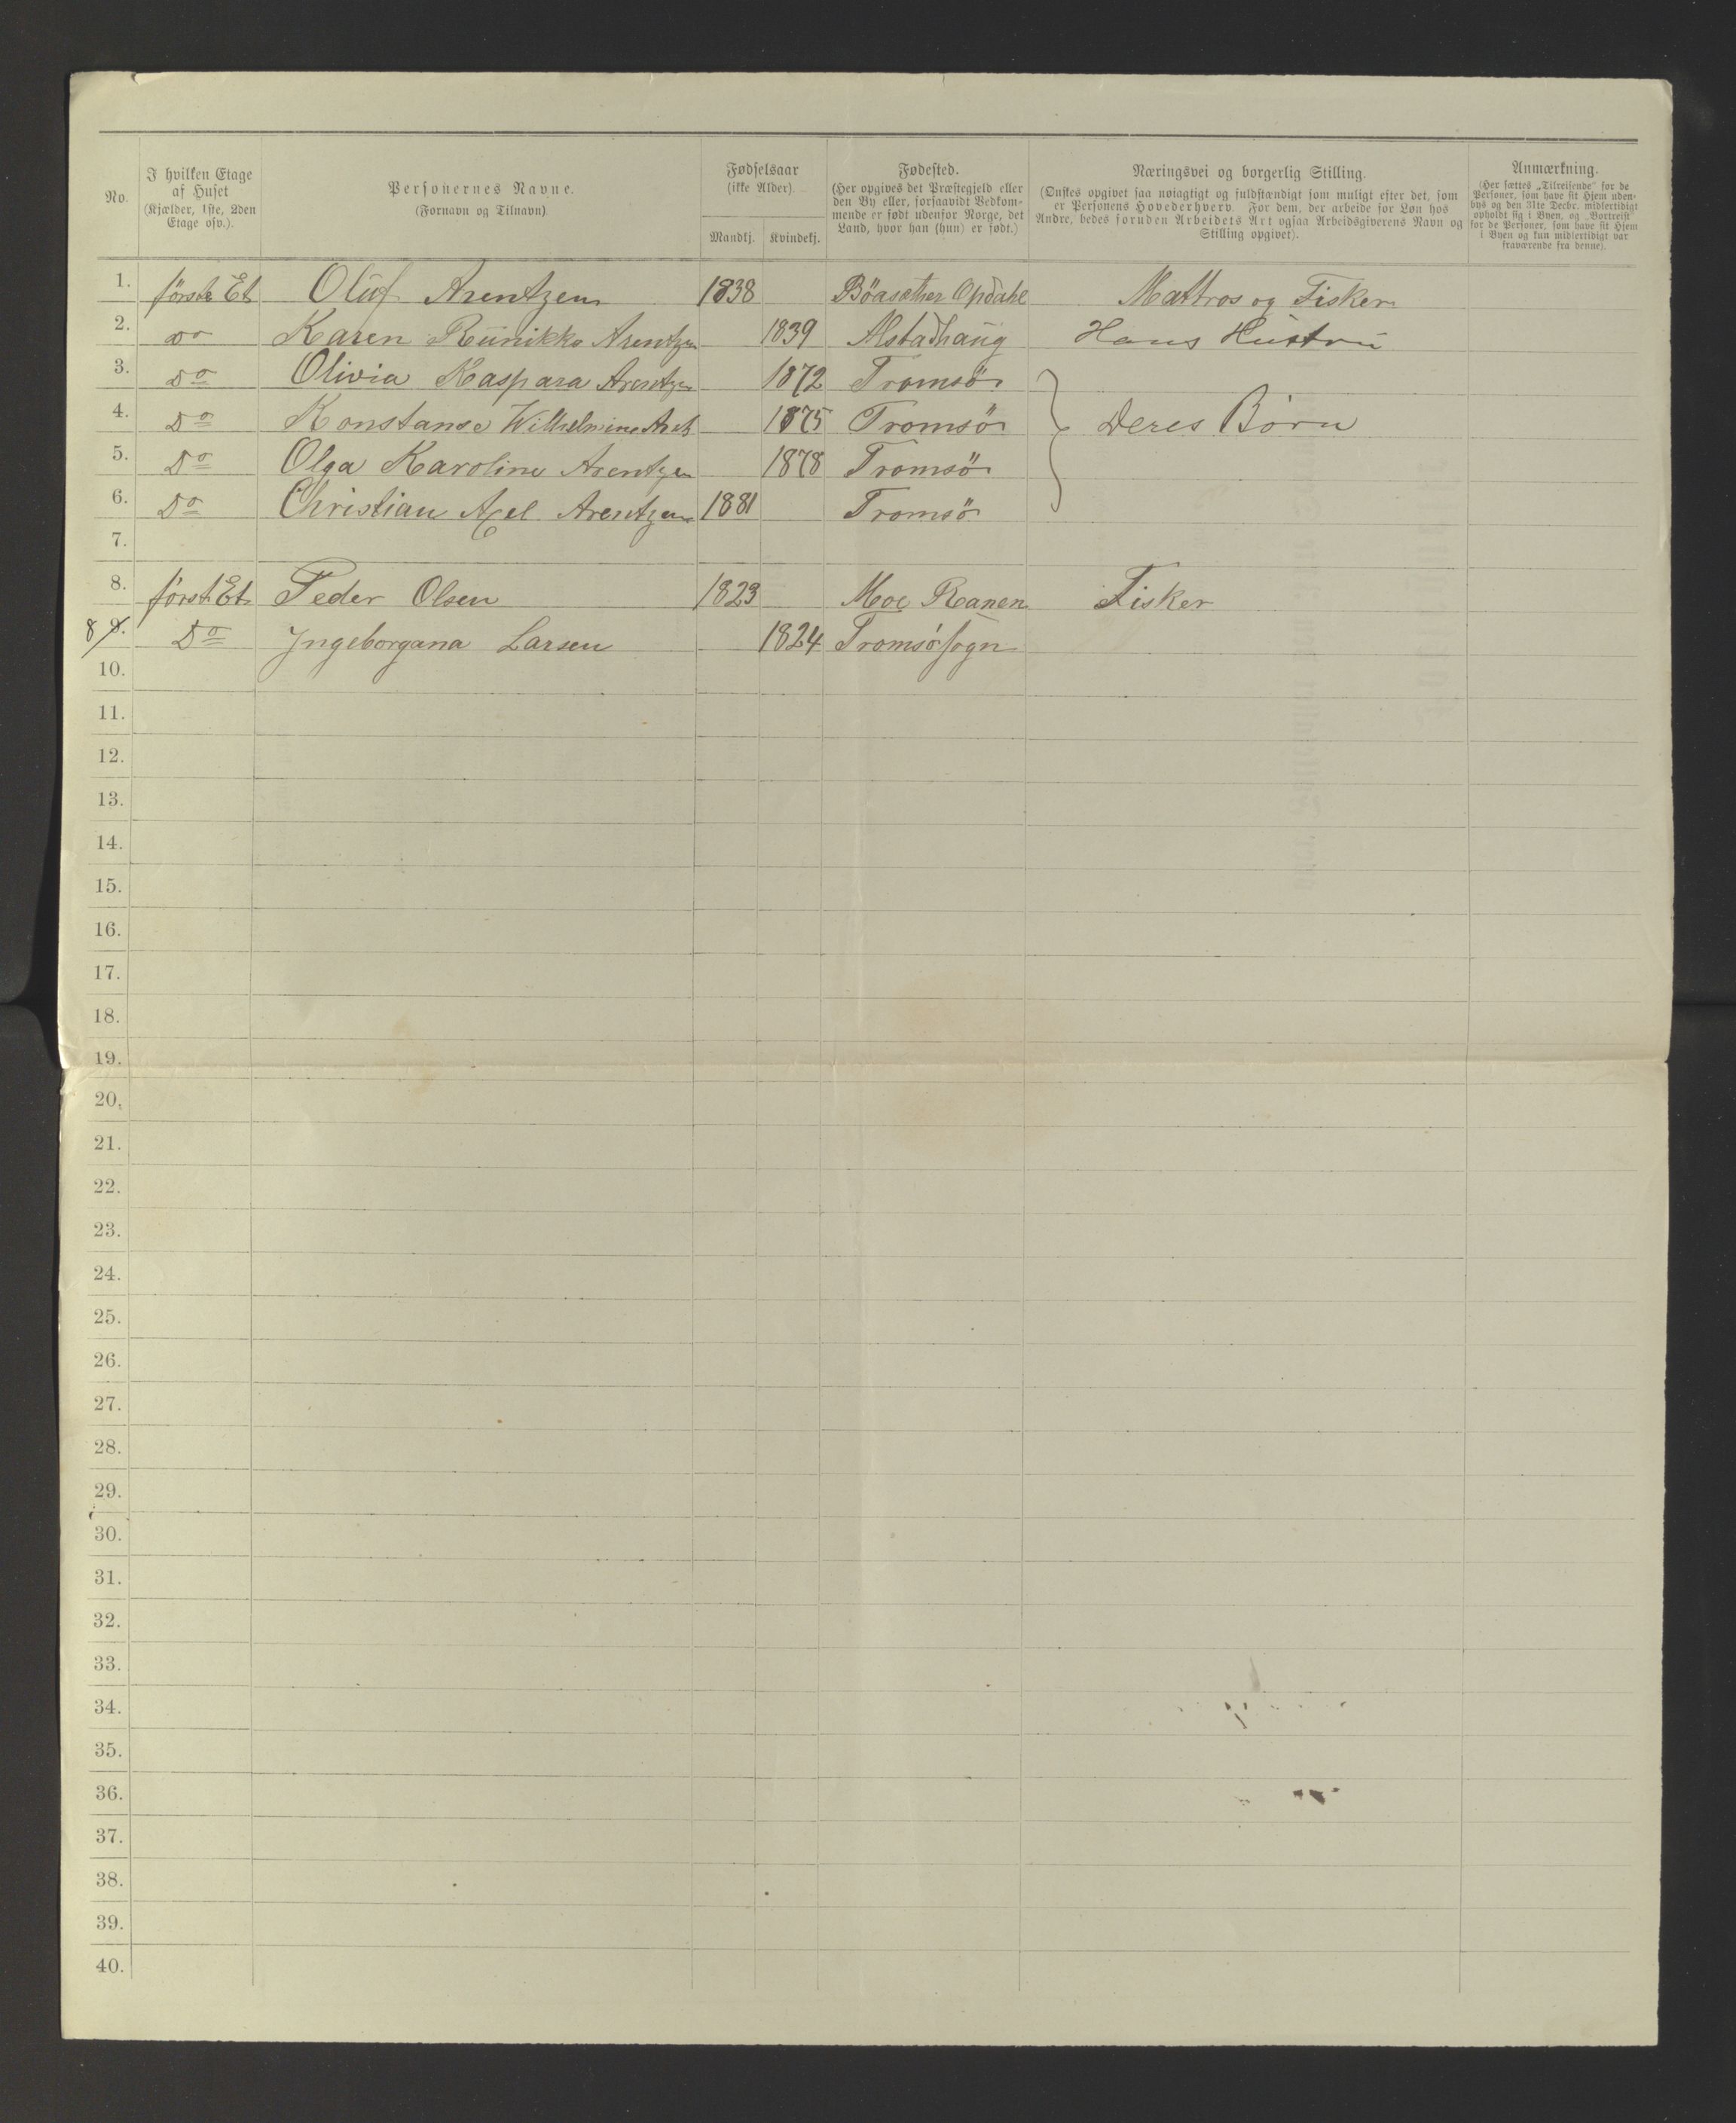 No.
I hvilken Etage
af Huset
(Kjælder, 1ste, 2den
Etage osv.).
Personernes Navne.
(Fornavn og Tilnavn)
Fødselsaar
(ikke Alder).
Mandkj.
Kvindekj.
Fødested.
(Her opgives det Præstegjeld eller
den By eller, forsaavidt Vedkom-
mende er født udenfor Norge, det
Land, hvor han (hun) er født.)
Næringsvei og borgerlig Stilling.
(Ønskes opgivet saa nøiagtigt og fuldstændigt som muligt efter det, som
er Personens Hovederhverv. For dem, der arbeide for Løn hos
Andre, bedes foruden Arbeidets Art ogsaa Arbeidsgiverens Navn og
Stilling opgivet).
Anmærkning.
(Her sættes „Tilreisende" for de
Personer, som have sit Hjem uden-
bys og den 31te Decbr. midlertidigt
opholdt sig i Byen, og „Bortreist"
for de Personer, som have sit Hjem
i Byen og kun midlertidigt var
fraværende fra denne).
1. første Et Oluf Arentzen 1838 Böasæther Opdahl Mattros og Fisker
2. Do Karen Runikke Arentzen 1839 Alstadhaug Hans Hustru
3. Do Olivia Kaspara Arentzen 1872 Tromsö
4. Do Konstanse Wilhelmine 1875 Tromsö Deres Börn
5. Do Olga Karoline Arentzen 1878 Tromsö
6. Do Christian Axel Arentzen 1881 Tromsö
7.
8. først Et Peder Olsen 1823 Moe Ranen Fisker
8 9. Do Ingeborgana Larsen 1824 Tromsösogn
10.
11.
12.
13.
14.
15.
16.
17.
18.
19.
20.
21.
22.
23.
24.
25.
26.
27.
28.
29.
30.
31.
32.
33.
34.
35.
36.
37.
38.
39.
40.